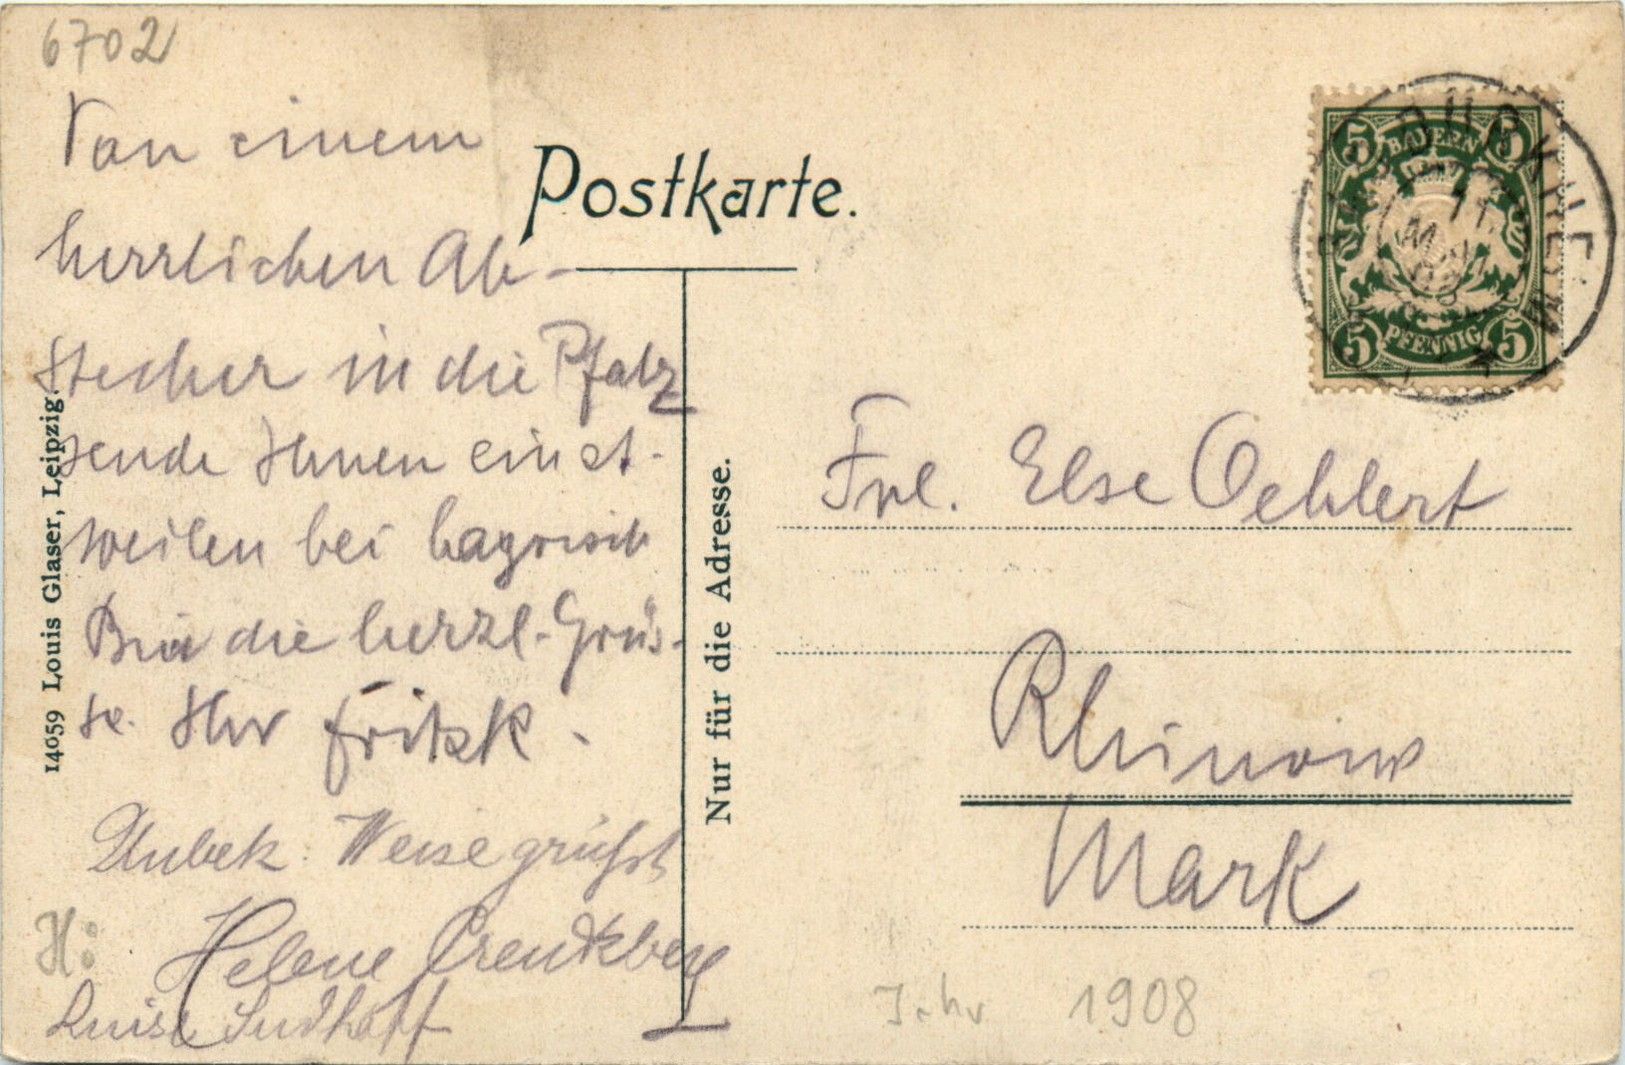 6702
Von einem
herrlichen Ab-
stecher in die Pfalz
sende Ihnen einst-
weilen bei bayrisch
Bier die herzl. Grüs-
se. Ihr Fritz K.
Unbek. Weise grüßt
H:
Helene
Luise Sudhoff
14059 Louis Glaser, Leipzig.
Postkarte.
Nur für die Adresse.
BAYERN
5 5
5 PFENNIG 5
DÜRKHEIM
11
Frl. Else Oehlert
Rhinow
Mark
Jahr 1908